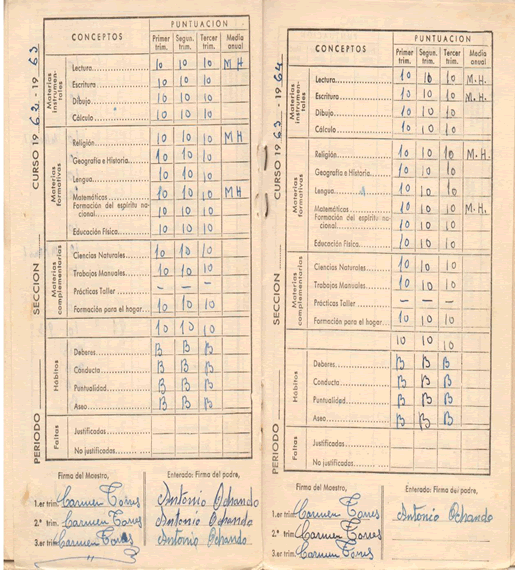 CURSO 1962 - 1963
SECCION
PERIODO
CONCEPTOS
PUNTUACION
Primer trim. Segun. trim. Tercer trim. Media anual
Materias instrumentales
Lectura 10 10 10 M H
Escritura 10 10 10
Dibujo 10 10 10
Cálculo 10 10 10
Materias formativas
Religión 10 10 10 M H
Geografía e Historia 10 10 10
Lengua 10 10 10
Matemáticas 10 10 10 M H
Formación del espíritu nacional 10 10 10
Educación Física 10 10 10
Materias complementarias
Ciencias Naturales 10 10 10
Trabajos Manuales 10 10 10
Prácticas Taller – – –
Formación para el hogar 10 10 10
10 10 10
Hábitos
Deberes B B B
Conducta B B B
Puntualidad B B B
Aseo B B B
Faltas
Justificadas
No justificadas
Firma del Maestro, Enterado: Firma del padre,
1.er trim. Carmen Torres Antonio Ochando
2.º trim. Carmen Torres Antonio Ochando
3.er trim. Carmen Torres Antonio Ochando
CURSO 1963 - 1964
SECCION
PERIODO
CONCEPTOS
PUNTUACION
Primer trim. Segun. trim. Tercer trim. Media anual
Materias instrumentales
Lectura 10 10 10 M.H.
Escritura 10 10 10 M.H.
Dibujo 10 10 10
Cálculo 10 10 10
Materias formativas
Religión 10 10 10 M.H.
Geografía e Historia 10 10 10
Lengua 10 10 10
Matemáticas 10 10 10 M.H.
Formación del espíritu nacional 10 10 10
Educación Física 10 10 10
Materias complementarias
Ciencias Naturales 10 10 10
Trabajos Manuales 10 10 10
Prácticas Taller – – –
Formación para el hogar 10 10 10
10 10 10
Hábitos
Deberes B B B
Conducta B B B
Puntualidad B B B
Aseo B B B
Faltas
Justificadas
No justificadas
Firma del Maestro, Enterado: Firma del padre,
1.er trim. Carmen Torres Antonio Ochando
2.º trim. Carmen Torres
3.er trim. Carmen Torres